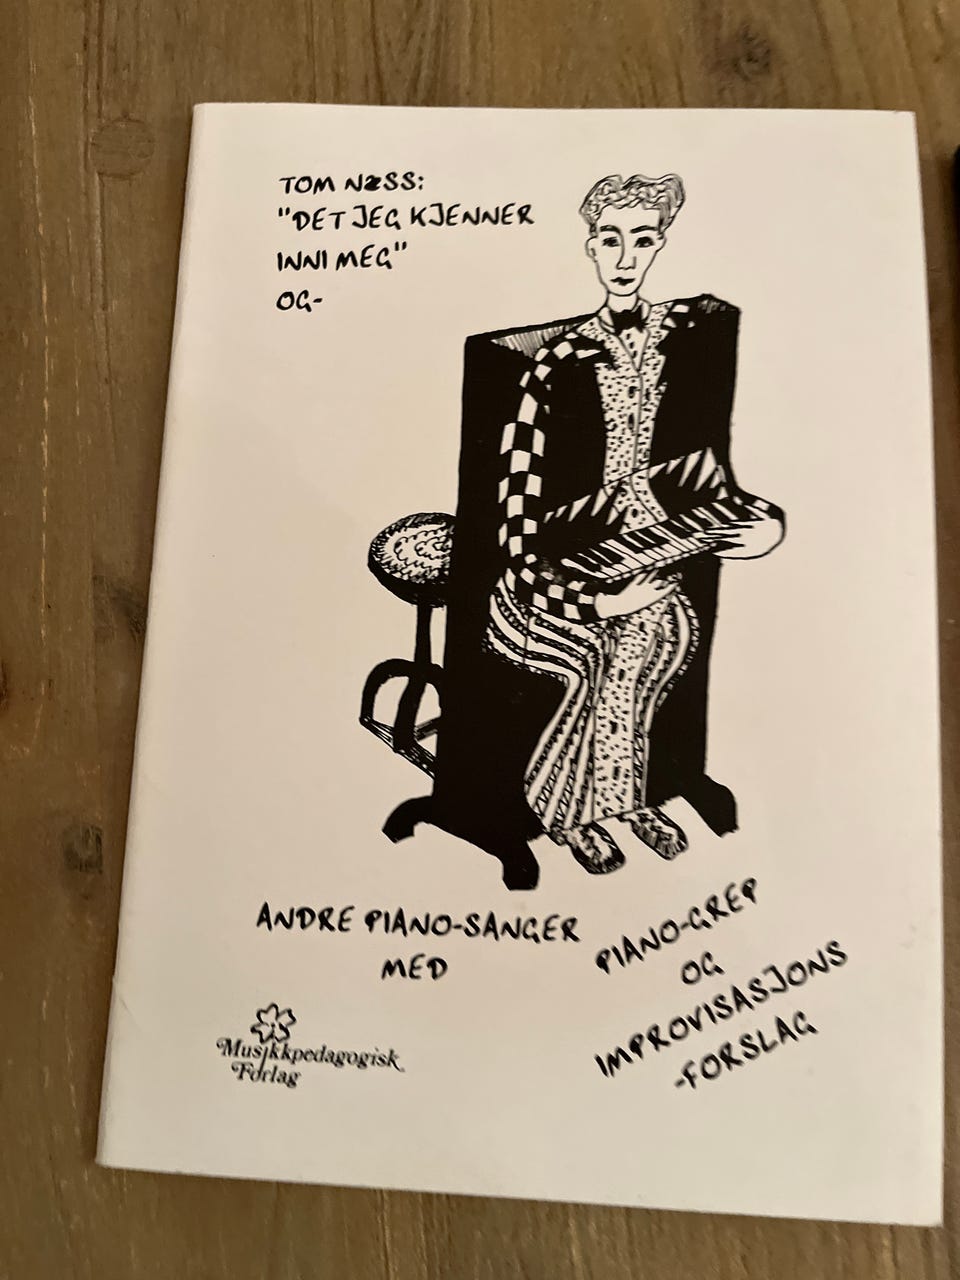 TOM NÆSS:
"DET JEG KJENNER
INNI MEG"
OG-
ANDRE PIANO-SANGER
MED
PIANO-GREP
OG
IMPROVISASJONS
-FORSLAG
Musikkpedagogisk
Forlag